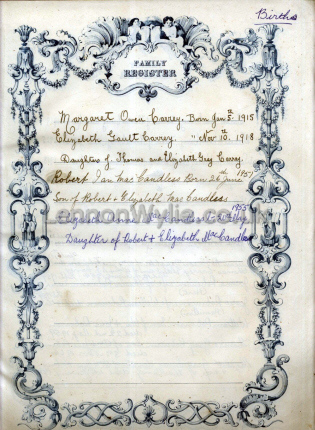 Births
FAMILY
REGISTER
Margaret Owen Carrey. Born Jan 5th 1915
Elizabeth Gault Carrey " Nov 10th 1918
Daughters of Thomas and Elizabeth Grey Carrey.
Robert Ian Mac Candless Born 26th June 1951
Son of Robert & Elizabeth Mac Candless
1955
Elizabeth
Daughter of Robert & Elizabeth Mac Candless